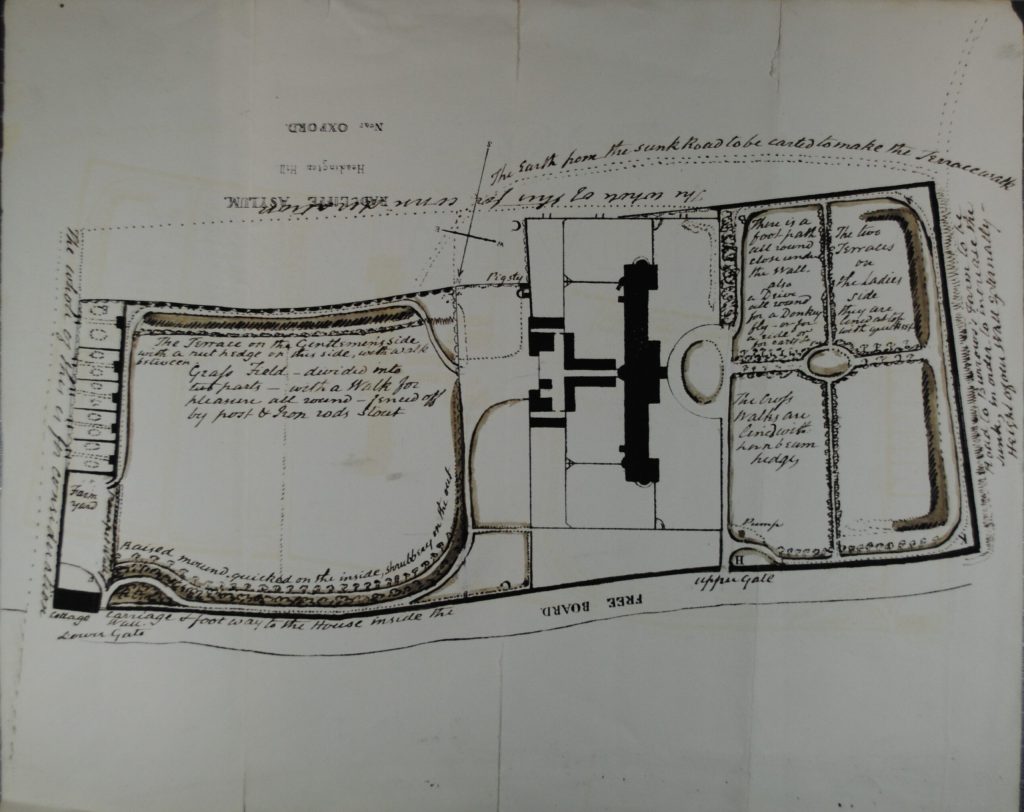 Near OXFORD.
Headington Hill
RADCLIFFE ASYLUM,
The Earth from the sunk Road to be carted to make the Terrace walk
The whole of this
S
E
W
Pigsty
C
There is a
foot path
all round
close under
the Wall.
also
a Drive
all round
for a Donkey
fly - or for
a ride
The two
Terraces
on
the Ladies
side
they are
with quickset
The Terrace on the Gentlemens side
with a nut hedge on this side, with a walk
between
Grass Field - divided into
two parts - with a Walk for
pleasure all round - fenced off
by post & Iron rods Stout
The Cross
Walks are
lined with
hornbeam
hedges
Farm
yard
Raised mound, quicked on the inside, shrubbery on the out
Pump
H
C
upper Gate
FREE BOARD.
Cottage
Carriage & foot way to the House inside the
Wall.
Lower Gate
The whole of this under consideration
Road to Barrows's farm to be
sunk, in order to increase the
Height of our Wall externally -